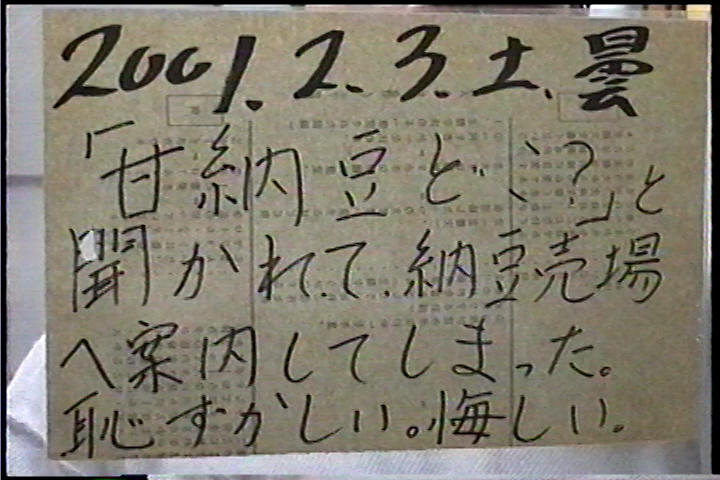 2001.2.3.土.曇
「甘納豆どこ?」と
聞かれて、納豆売場
へ案内してしまった。
恥ずかしい。悔しい。